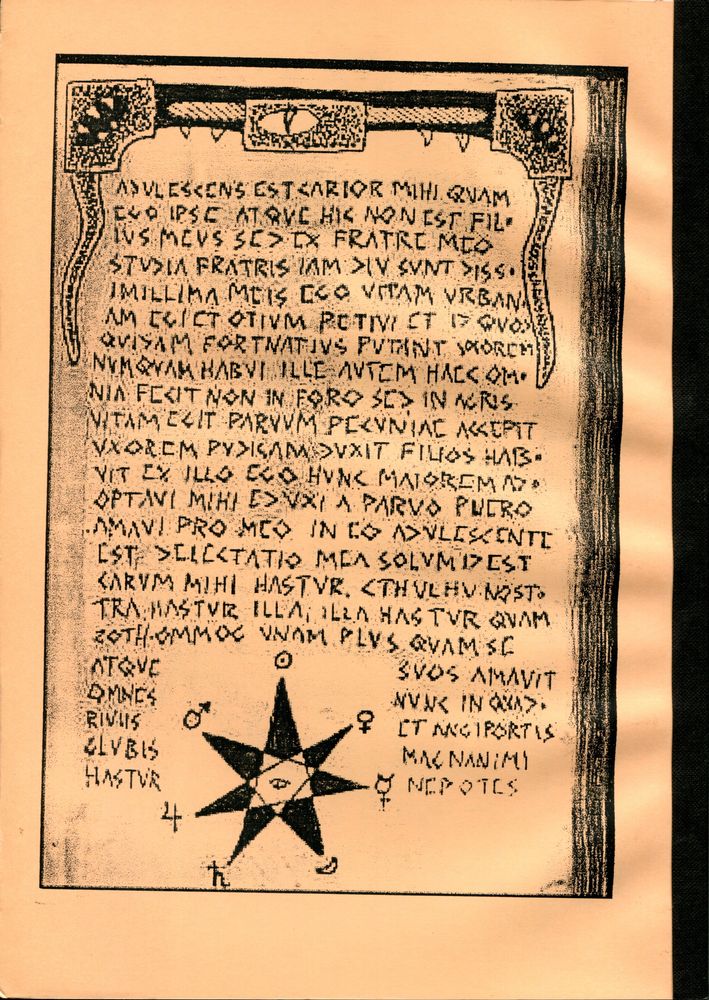 ADVLESCENS EST CARIOR MIHI QVAM
EGO IPSE ATQVE HIC NON EST FIL•
IVS MEVS SED EX FRATRE MEO
STVDIA FRATRIS IAM DIV SVNT DISS•
IMILLIMA MEIS EGO VITAM VRBAN
AM EGI ET OTIVM PETIVI ET ID QVOD
QVIDAM FORTNATIVS PVTANT VXOREM
NVMQVAM HABVI ILLE AVTEM HAEC OM•
NIA FECIT NON IN FORO SED IN AGRIS
VITAM EGIT PARVVM PECVNIAE ACCEPIT
VXOREM PVDICAM DVXIT FILIOS HAB•
VIT EX ILLO EGO HVNC MAIOREM AD•
OPTAVI MIHI EDVXI A PARVO PVERO
AMAVI PRO MEO IN EO ADVLESCENTE
EST DELECTATIO MEA SOLVM ID EST
CARVM MIHI HASTVR. CTHVLHV NOST•
TRA HASTVR ILLA, ILLA HASTVR QVAM
ZOTH-OMMOG VNAM PLVS QVAM SE
ATQVE SVOS AMAVIT
OMNES NVNC IN QVAD•
RIVIIS ET ANGIPORTIS
GLVBIS MAGNANIMI
HASTVR NEPOTES